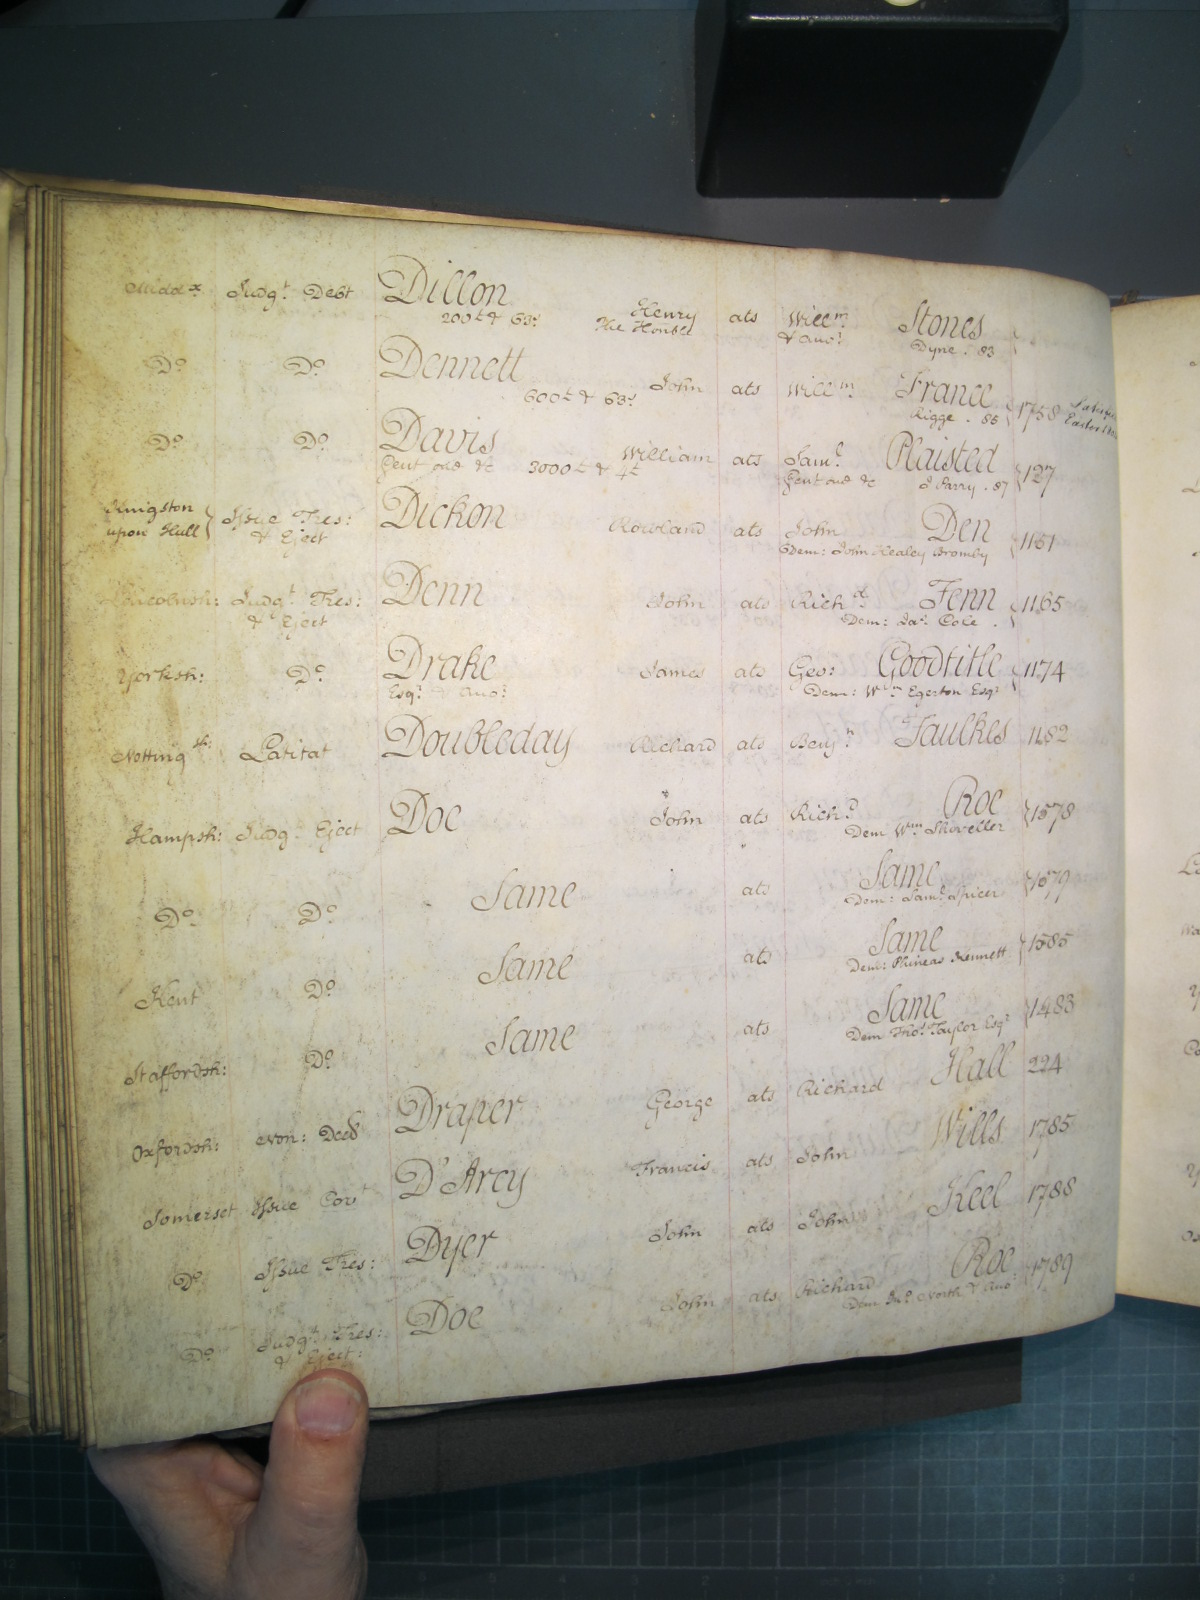 Midd.x Judg.t Debt Dillon Henry ats Will.m Stones
200£ & 63.s The Hon.ble & ano.r Dyne . 83
D.o D.o Dennett John ats Will.m France 1758
600£ & 63.s Rigge . 85
D.o D.o Davis William ats Sam.l Plaisted 127
Gent one &c 3000£ & 4£ Gent one &c J Parry . 87
Kingston upon Hull Issue Tres: & Eject Dickon Rowland ats John Den 1151
Dem: John Healey Bromby
Lincolnsh: Judg.t Tres: & Eject Denn John ats Rich.d Fenn 1165
Dem: Ja.s Cole .
Yorksh: D.o Drake James ats Geo: Goodtitle 1174
Esq.r & ano.r Dem: W.m Egerton Esq.r
Notting sh: Latitat Doubleday Richard ats Benj.n Faulkes 1182
Hampsh: Judg.t Eject Doe John ats Rich.d Roe 1578
Dem W.m Shoveller
D.o D.o Same ats Same 1579
Dem: Sam.l Spicer
Kent D.o Same ats Same 1585
Dem: Phineas Kennett
Staffordsh: D.o Same ats Same 1483
Dem Tho.s Taylor Esq.r
Oxfordsh: Non: Deed Draper George ats Richard Hall 224
Somerset Issue Cov.t D'Arcy Francis ats John Wills 1785
D.o Issue Tres: Dyer John ats John Keel 1788
D.o Judg.t Tres: & Eject: Doe John ats Richard Roe 1789
Dem Jn.o North & ano.r